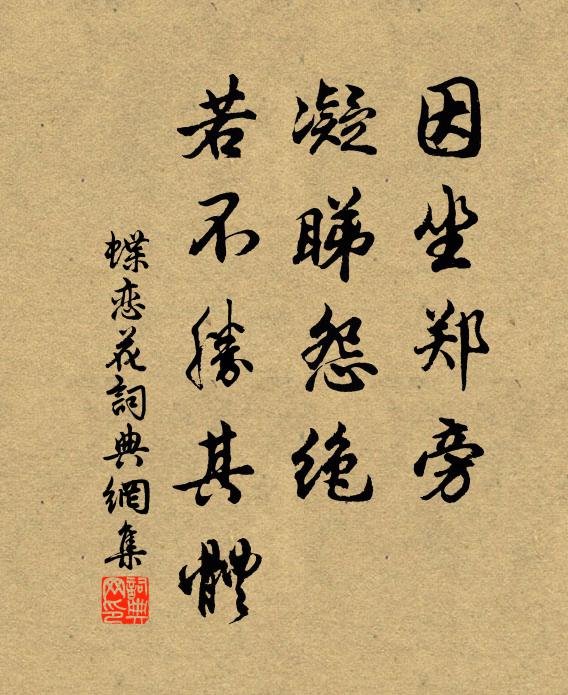 因坐郑旁
凝睇怨绝
若不勝其體
蝶恋花詞典網集
詞典网印